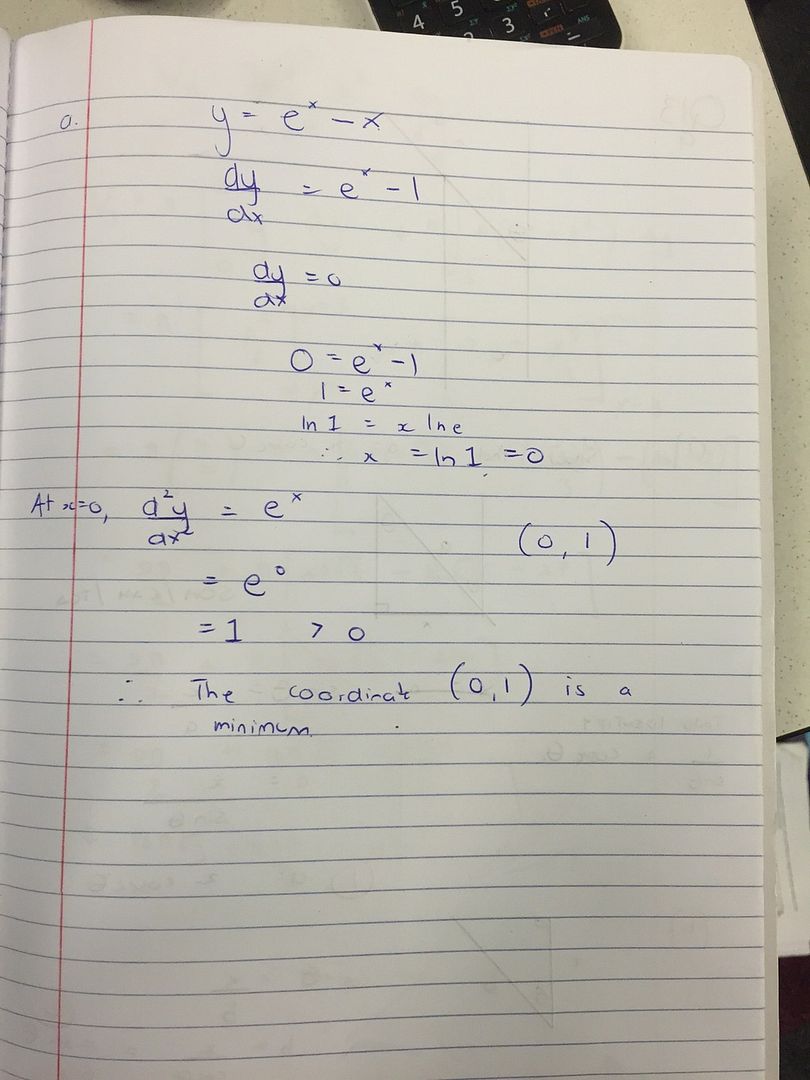 4 5 2 3 ANS
a. y = e^x - x
dy/dx = e^x - 1
dy/dx = 0
0 = e^x - 1
1 = e^x
ln 1 = x ln e
∴ x = ln 1 = 0
At x=0, d²y/dx² = e^x
(0, 1)
= e^0
= 1 > 0
∴ The coordinate (0,1) is a
minimum.